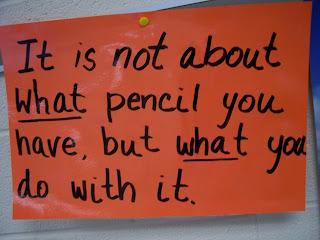 It is not about
what pencil you
have, but what you
do with it.